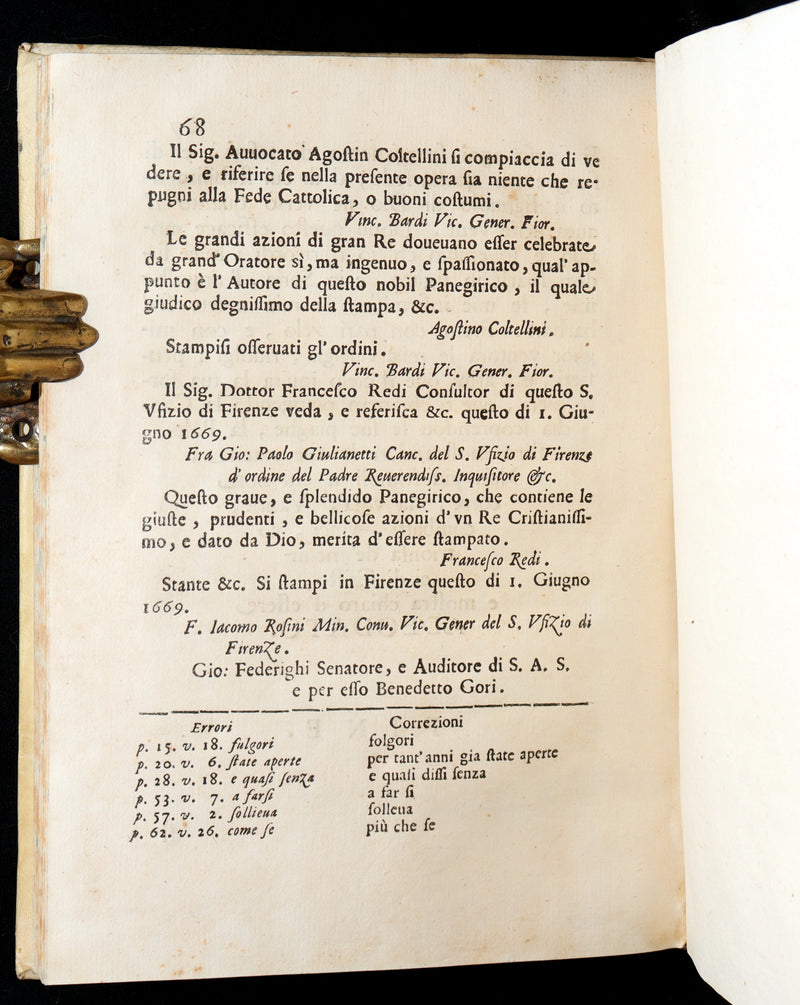 68
Il Sig. Auuocato Agoſtin Coltellini ſi compiaccia di ve
dere, e riferire ſe nella preſente opera ſia niente che re-
pugni alla Fede Cattolica, o buoni coſtumi.
Vinc. Bardi Vic. Gener. Fior.
Le grandi azioni di gran Re doueuano eſſer celebrate
da grand' Oratore sì, ma ingenuo, e ſpaſſionato, qual' ap-
punto è l' Autore di queſto nobil Panegirico, il quale
giudico degniſſimo della ſtampa, &c.
Agoſtino Coltellini.
Stampiſi oſſeruati gl' ordini.
Vinc. Bardi Vic. Gener. Fior.
Il Sig. Dottor Franceſco Redi Conſultor di queſto S.
Vfizio di Firenze veda, e referiſca &c. queſto di 1. Giu-
gno 1669.
Fra Gio: Paolo Giulianetti Canc. del S. Vfizio di Firenze
d' ordine del Padre Reuerendiſs. Inquiſitore &c.
Queſto graue, e ſplendido Panegirico, che contiene le
giuſte, prudenti, e bellicoſe azioni d' vn Re Criſtianiſſi-
mo, e dato da Dio, merita d' eſſere ſtampato.
Franceſco Redi.
Stante &c. Si ſtampi in Firenze queſto di 1. Giugno
1669.
F. Iacomo Roſini Min. Conu. Vic. Gener del S. Vfizio di
Firenze.
Gio: Federighi Senatore, e Auditore di S. A. S.
e per eſſo Benedetto Gori.
Errori Correzioni
p. 15. v. 18. fulgori folgori
p. 20. v. 6. ſtate aperte per tant' anni gia ſtate aperte
p. 28. v. 18. e quaſi ſenza e quali diſſi ſenza
p. 53. v. 7. a farſi a far ſi
p. 57. v. 2. ſollieua ſolleua
p. 62. v. 26. come ſe più che ſe